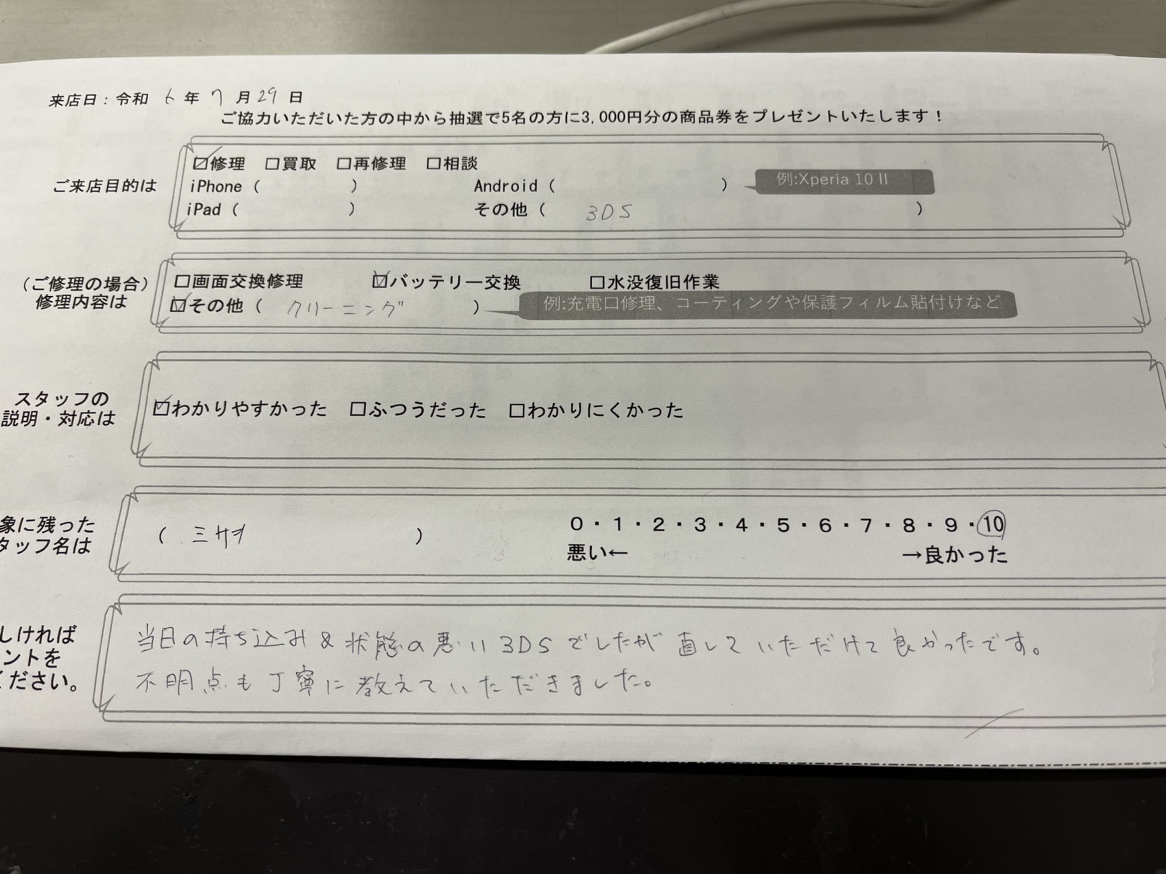 来店日：令和 6 年 7 月 29 日
ご協力いただいた方の中から抽選で5名の方に3,000円分の商品券をプレゼントいたします！
ご来店目的は
☑修理 □買取 □再修理 □相談
iPhone（ ） Android（ ） 例:Xperia 10 II
iPad（ ） その他（ 3DS ）
（ご修理の場合）
修理内容は
□画面交換修理 ☑バッテリー交換 □水没復旧作業
☑その他（ クリーニング ） 例:充電口修理、コーティングや保護フィルム貼付けなど
スタッフの
説明・対応は
☑わかりやすかった □ふつうだった □わかりにくかった
象に残った
タッフ名は
（ ミサヲ ）
0・1・2・3・4・5・6・7・8・9・10
悪い← →良かった
しければ
ントを
ください。
当日の持ち込み & 状態の悪い3DSでしたが直していただけて良かったです。
不明点も丁寧に教えていただきました。